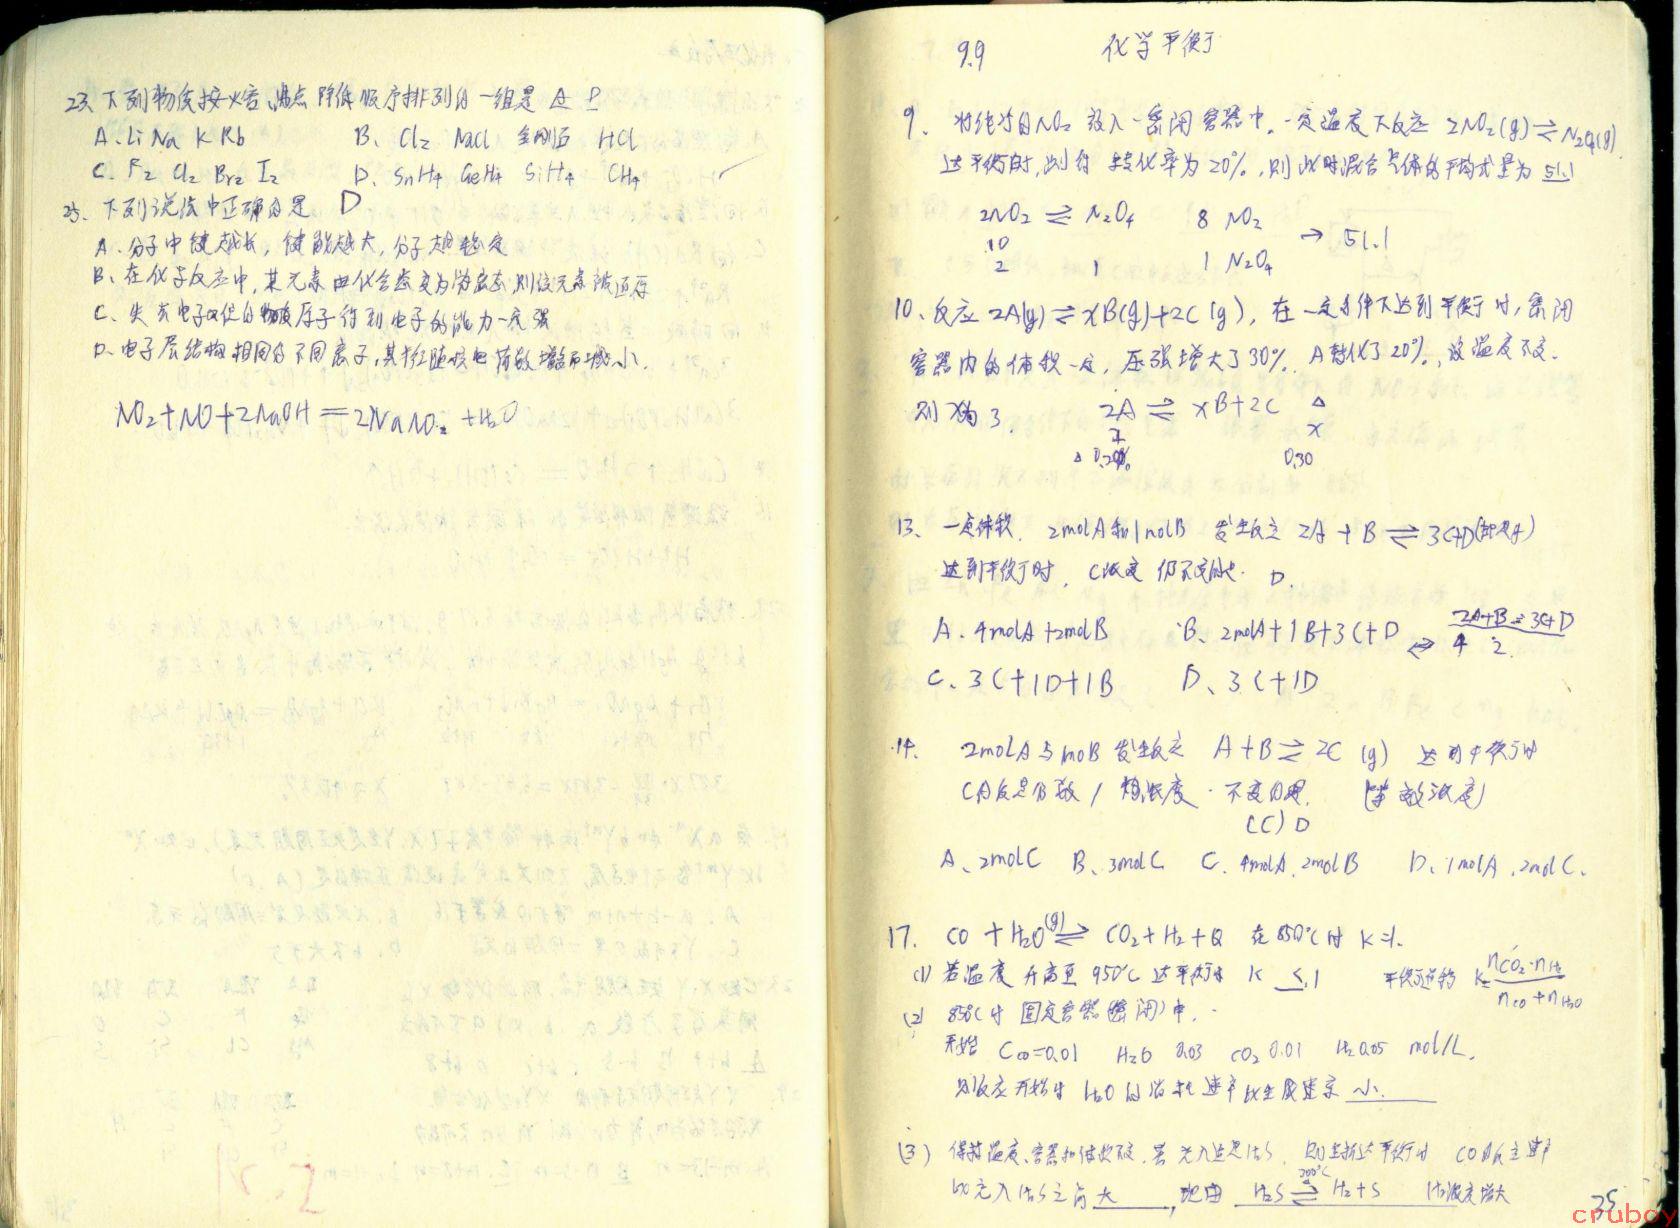 23、下列物质按熔、沸点降低顺序排列的一组是 A D
A. Li Na K Rb B、Cl₂ NaCl 金刚石 HCl
C. F₂ Cl₂ Br₂ I₂ D. SnH₄ GeH₄ SiH₄ CH₄
25、下列说法中正确的是 D
A、分子中键越长，键能越大，分子越稳定
B、在化学反应中，某元素由化合态变为游离态则该元素被还原
C、失去电子的物质原子得到电子的能力一定强
D、电子层结构相同的不同离子，其半径随核电荷数增多而减小.
NO₂+NO+2NaOH=2NaNO₂+H₂O
9.9 化学平衡
9、将纯净的NO₂放入一密闭容器中，一定温度下反应 2NO₂(g)⇌N₂O₄(g)
达平衡时，转化率为20%，则此时混合气体的平均式量为 51.1
2NO₂ ⇌ N₂O₄ 8 NO₂
10 → 51.1
2 1 1 N₂O₄
10、反应 2A(g)⇌xB(g)+2C(g)，在一定条件下达到平衡时，密闭
容器内的体积一定，压强增大了30%，A转化了20%，设温度不变.
则x为3. 2A ⇌ xB+2C Δ
2 x
Δ 0.20 0.30
13、一定体积，2molA和1molB 发生反应 2A+B⇌3C+D
达到平衡时，C浓度仍不变的是 D.
A、4molA+2molB B、2molA+1B+3C+D ⇌ 2A+B=3C+D
4 2
C、3C+1D+1B D、3C+1D
14、2molA与 molB 发生反应 A+B⇌2C (g) 达到平衡时
浓度 不变的是 (等效浓度)
(C) D
A、2molC B、3molC C、4molA、2molB D、1molA，2molC.
17、CO+H₂O(g)⇌CO₂+H₂+Q 在850℃时 K=1.
(1) 若温度升高至950℃达平衡时 K <1 K= nCO₂·nH₂
nCO+nH₂O
(2) 850℃时 固定容器(密闭)中，
开始 Cco=0.01 H₂O 0.03 CO₂ 0.01 H₂ 0.05 mol/L.
则反应开始时 H₂O的消耗速率比生成速率 小.
(3) 保持温度、容器和体积不变，若充入适量H₂S，则重新达平衡时 CO反应速率
比充入H₂S之前 大，理由 H₂S ⇌ H₂+S H₂浓度增大
300℃
35
cruboy